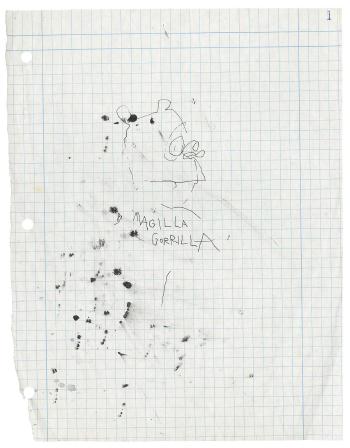 1
MAGILLA
GORRILLA